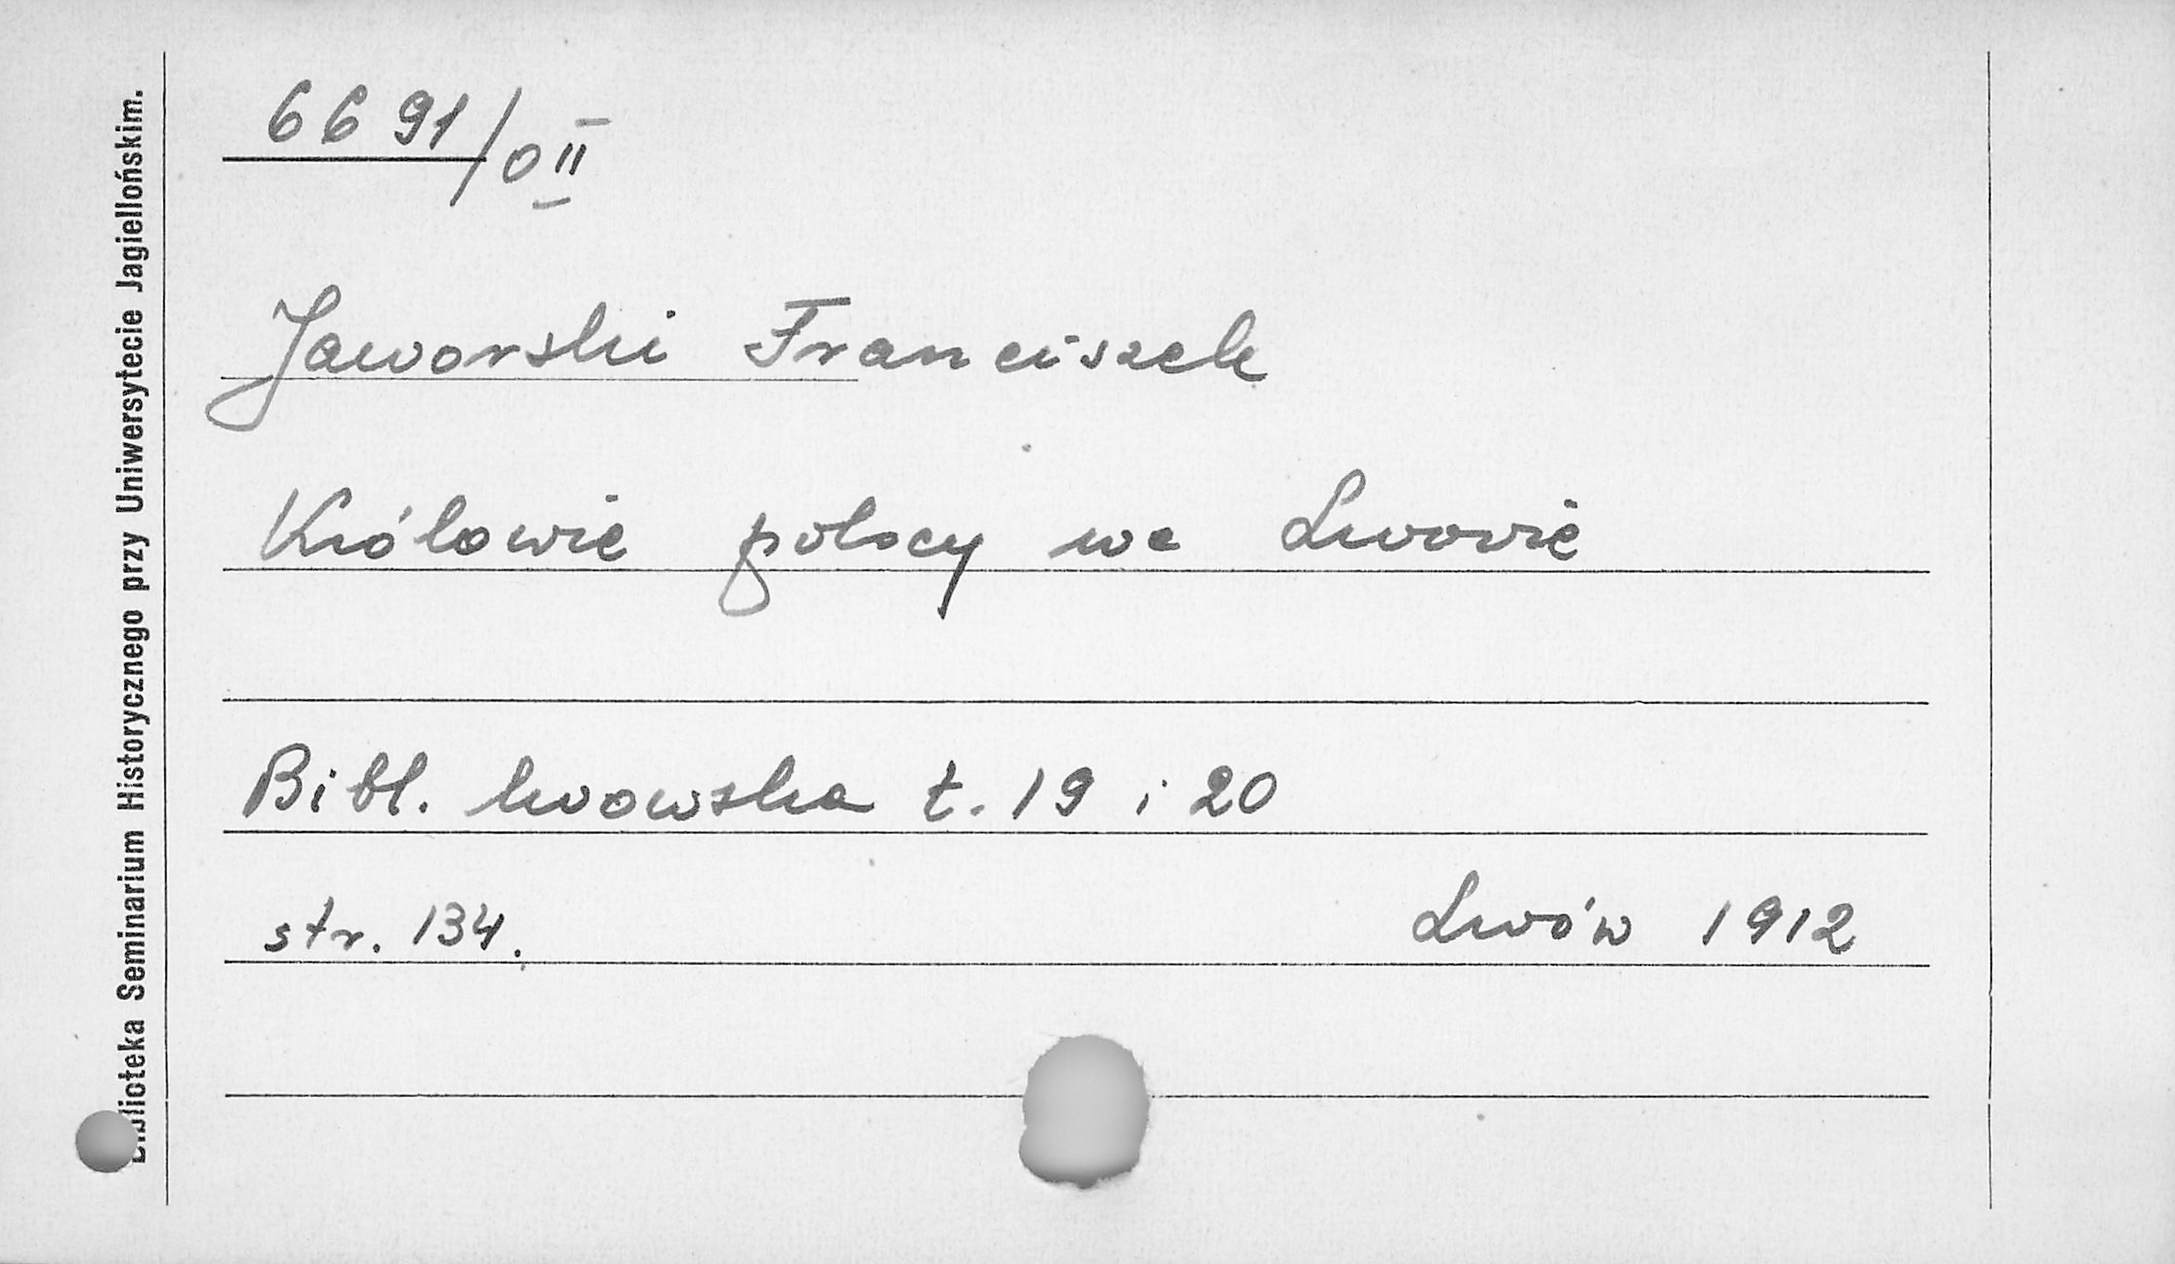 6691/O II
Jaworski Franciszek
Królowie polscy we Lwowie
Bibl. lwowska t. 19 i 20
str. 134.
Lwów 1912
Biblioteka Seminarium Historycznego przy Uniwersytecie Jagiellońskim.